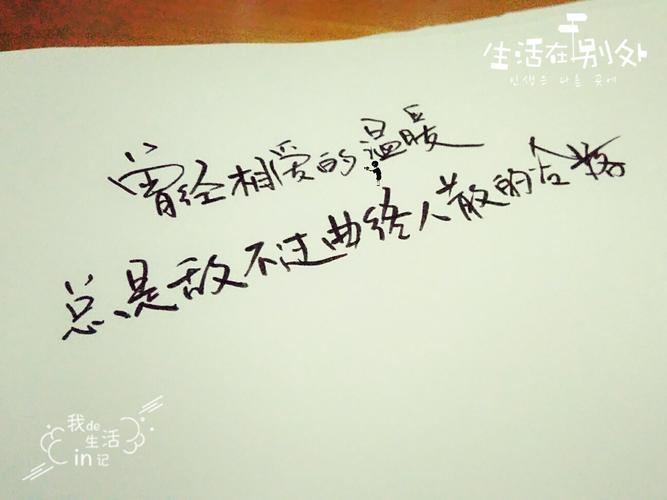 生活在别处
인생은 다른 곳에
曾经相爱的温暖
总是敌不过曲终人散的
我de
生活
in记